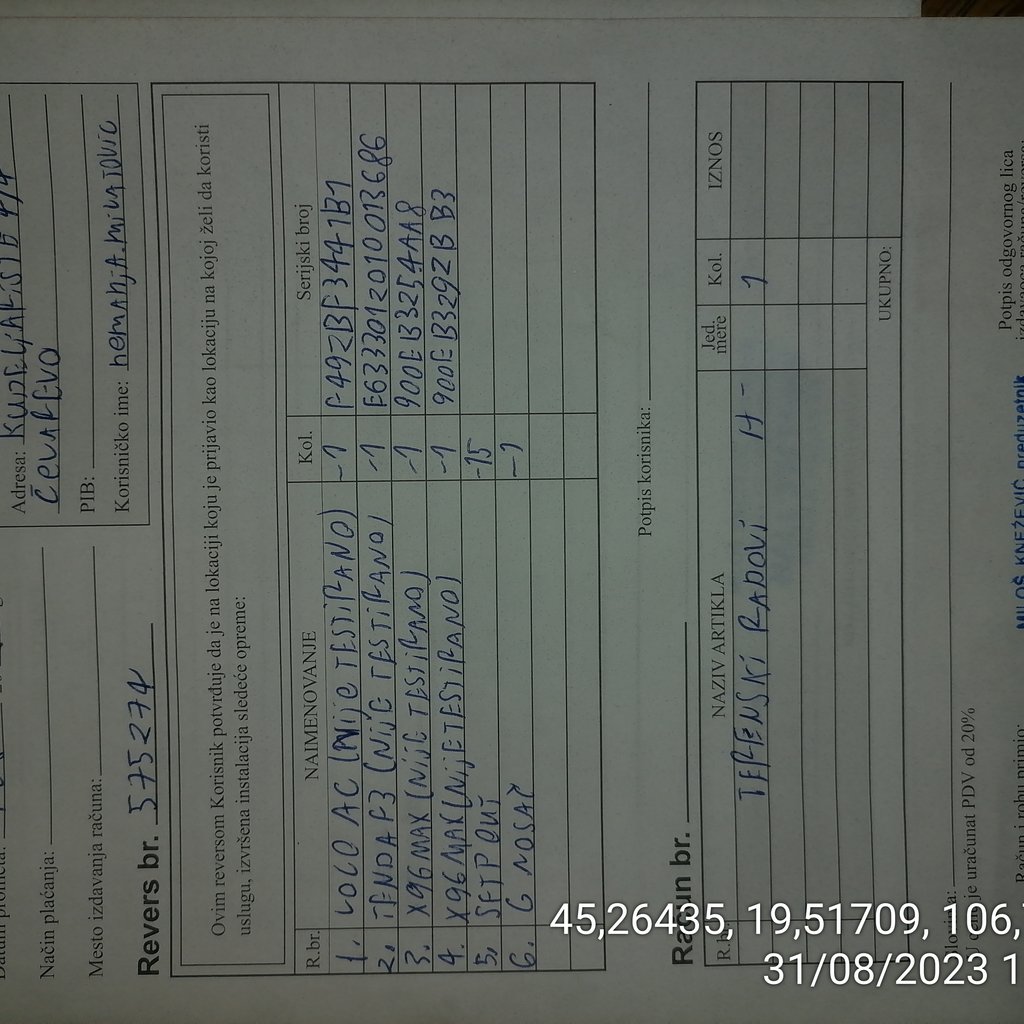 Adresa: KUDELJARIŠTE 4/4
ČELAREVO
PIB:
Korisničko ime: nemanja.milatovic
Način plaćanja:
Mesto izdavanja računa:
Revers br. 575274
Ovim reversom Korisnik potvrđuje da je na lokaciji koju je prijavio kao lokaciju na kojoj želi da koristi
uslugu, izvršena instalacija sledeće opreme:
R.br. NAIMENOVANJE Kol. Serijski broj
1. LOCO AC (NIJE TESTIRANO) -1 F492BF3441B1
2. TENDA F3 (NIJE TESTIRANO) -1 E6333012010013686
3. X96 MAX (NIJE TESTIRANO) -1 900EB3254AA8
4. X96 MAX (NIJE TESTIRANO) -1 900EB3292BB3
5. SFTP OUT -15
6. G NOSAČ -1
Potpis korisnika:
Račun br.
NAZIV ARTIKLA Jed. mere Kol. IZNOS
TERENSKI RADOVI H- 1
UKUPNO:
je uračunat PDV od 20%
Račun i robu primio:
Potpis odgovornog lica
MILOŠ KNEŽEVIĆ preduzetnik
45,26435, 19,51709, 106,
31/08/2023 1